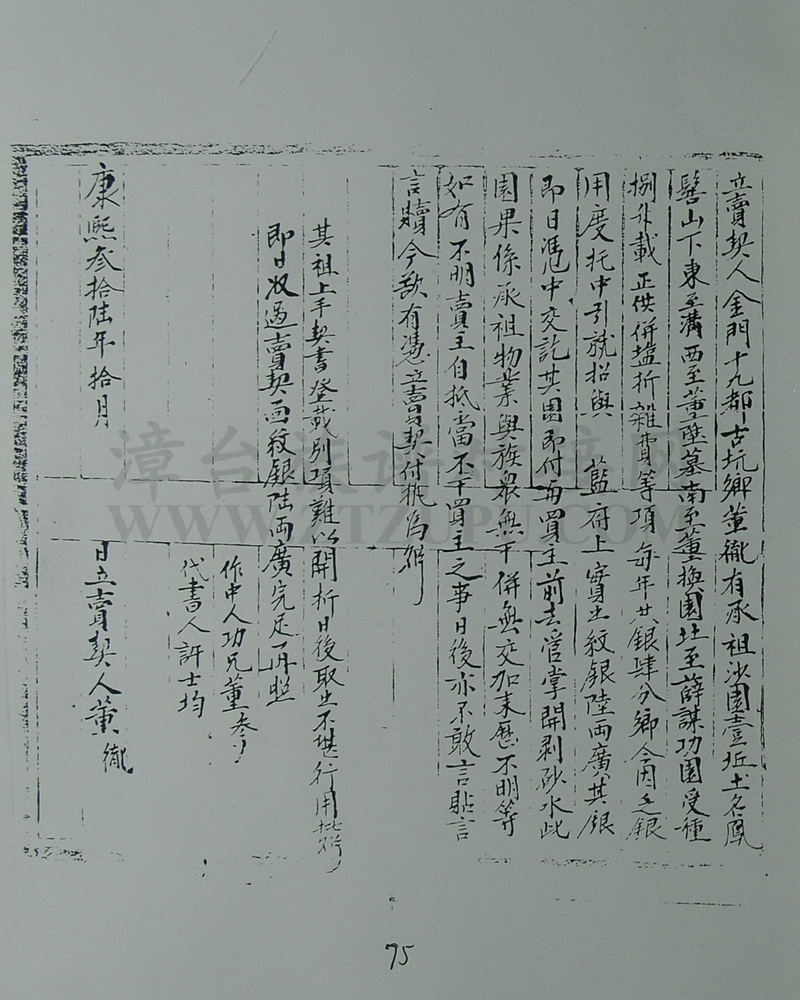 立賣契人金門十九都古坑鄉董徹有承祖沙園壹坵土名鳳
髻山下東至溝西至董墓南至董換園北至薛謀功園受種
捌升載正供併塩折雜費等項每年共銀肆分鄉今因乏銀
用度托中引就招與 藍府上賣出紋銀陸兩廣其銀
即日憑中交訖其園即付與買主前去管掌開剥砂水此
園果係承祖物業與族衆無干併無交加來歷不明等
如有不明賣主自抵當不干買主之事日後亦不敢言貼言
言贖今欲有憑立賣契付執爲炤
其祖上手契書登載別項難以開折日後取出不堪行用批炤
即日收過賣契面紋銀陸兩廣完足再照
作中人功兄董参
代書人許士均
康熙叁拾陸年拾月 日立賣契人董徹
漳台族譜
WWW.ZTZUPU.COM
75